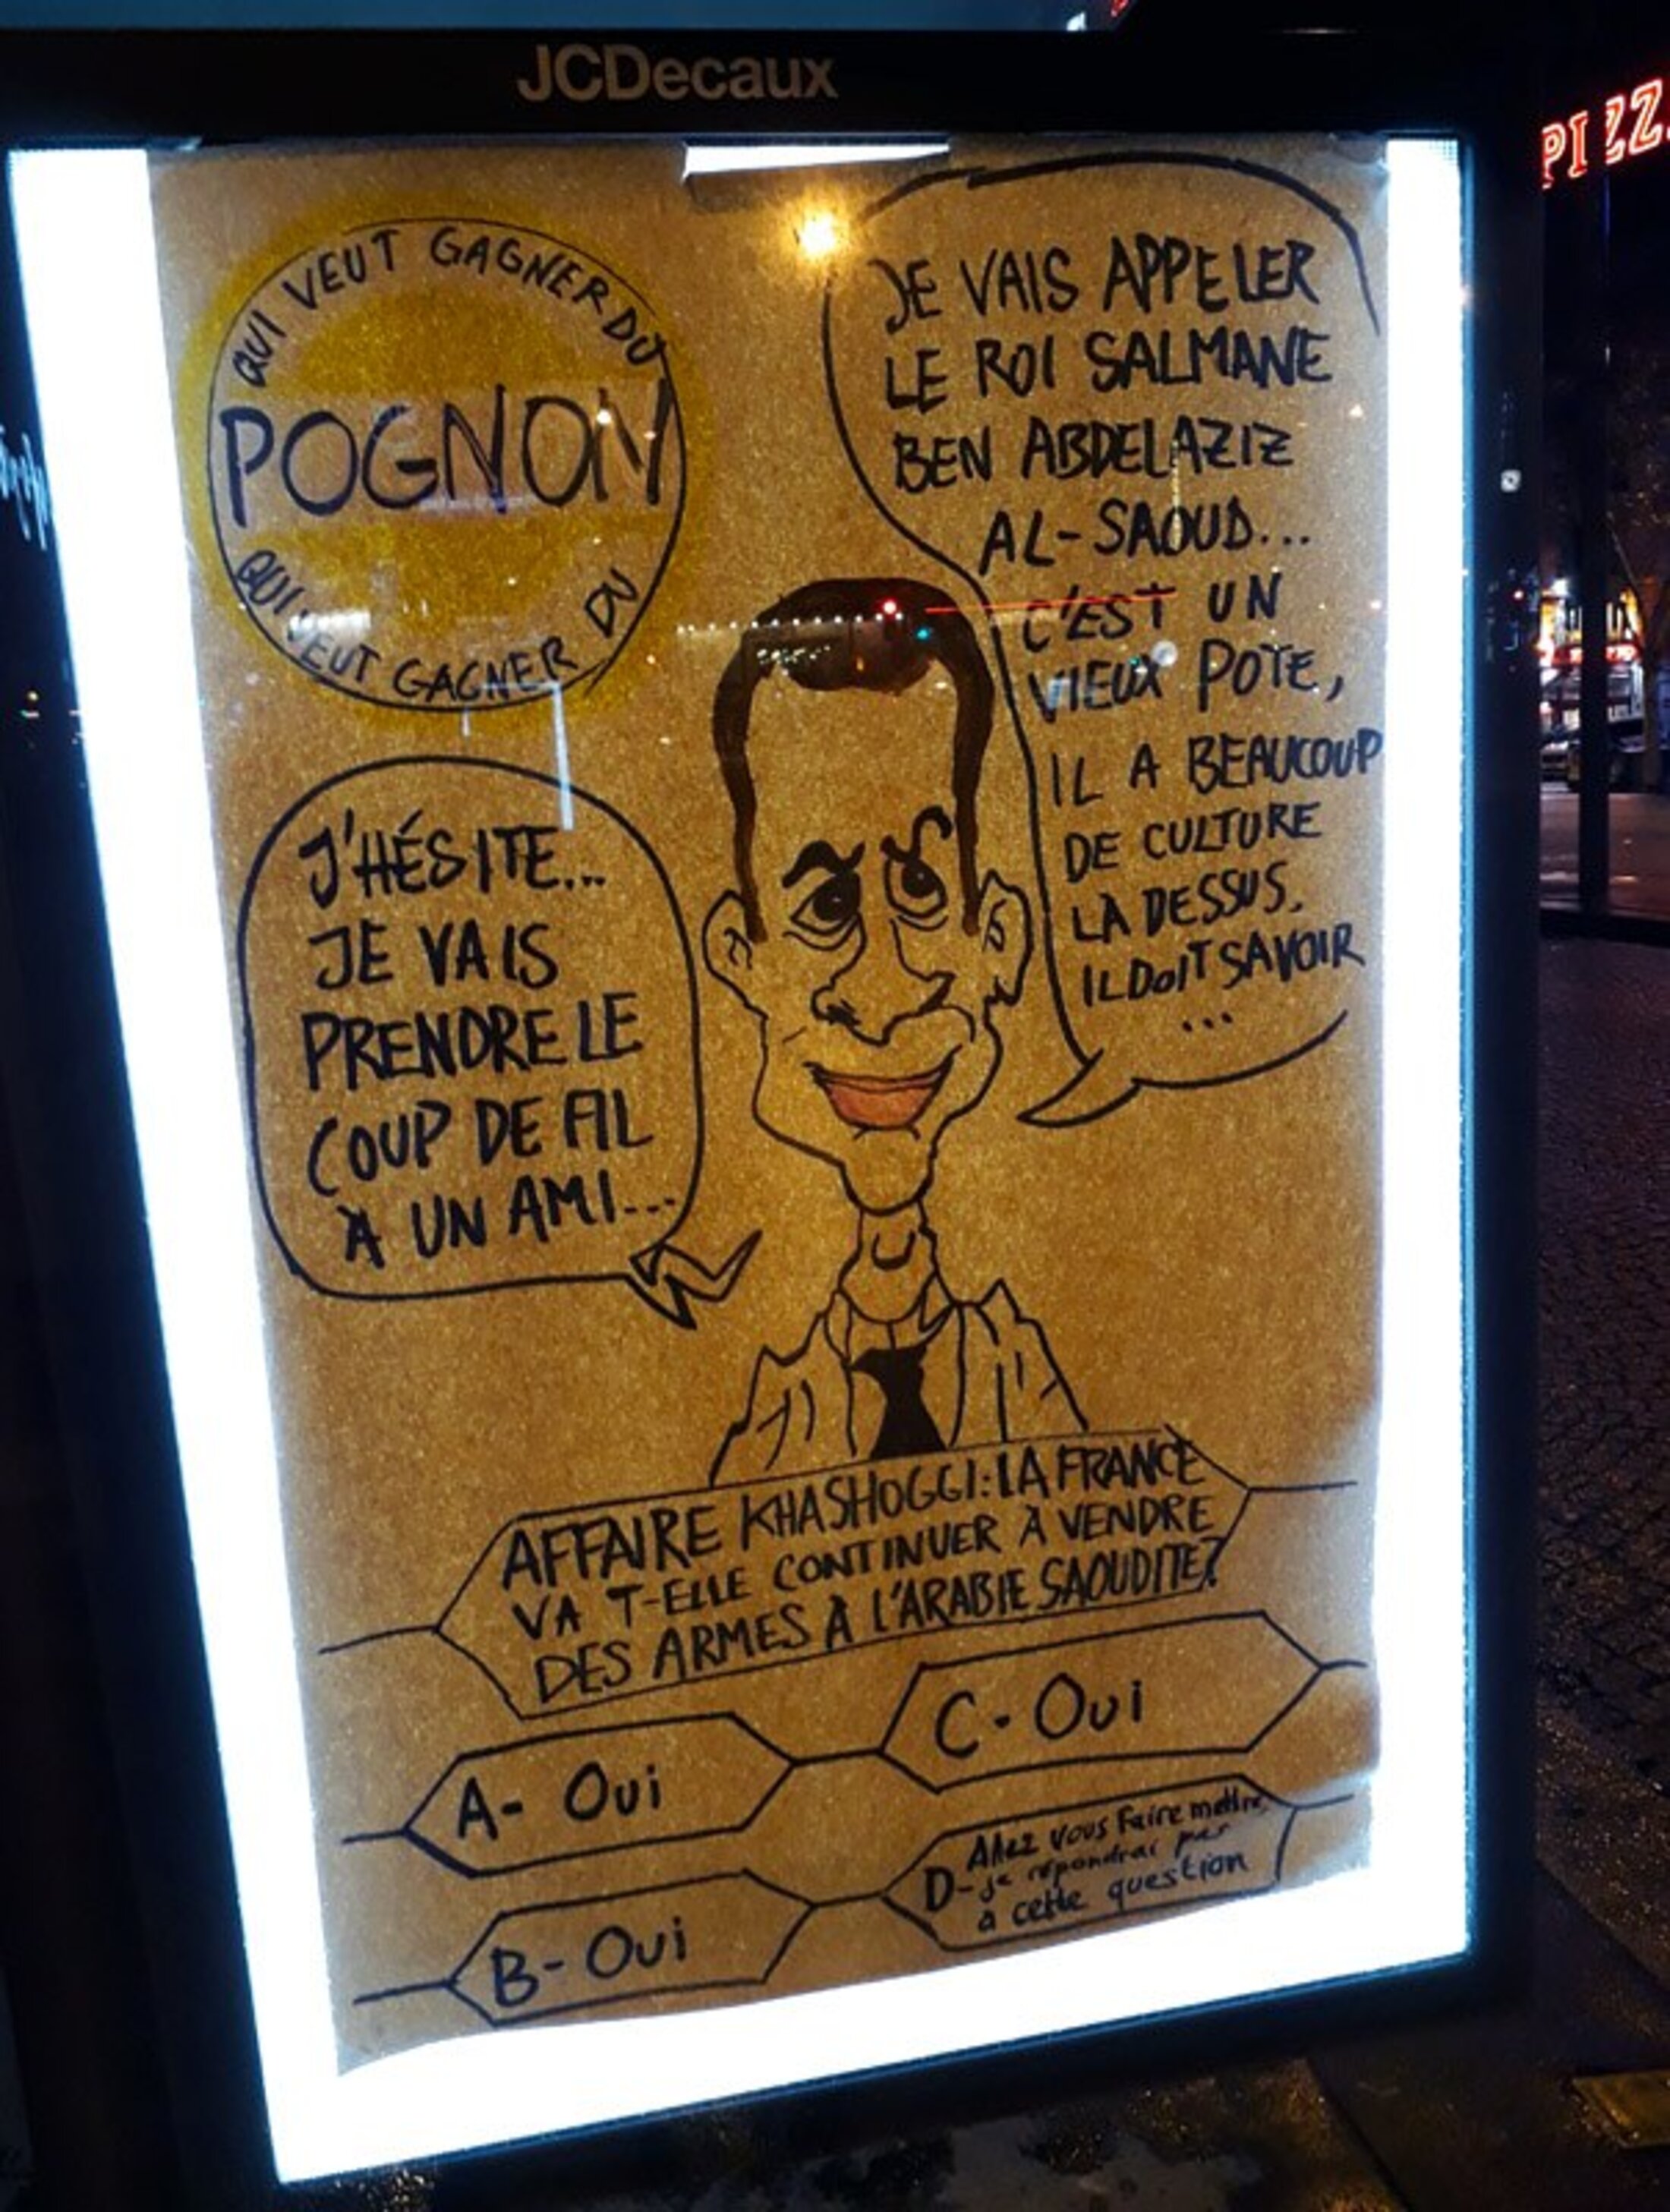 JCDecaux
PIZZ
QUI VEUT GAGNER DU
POGNON
QUI VEUT GAGNER DU
JE VAIS APPELER
LE ROI SALMANE
BEN ABDELAZIZ
AL-SAOUD...
C'EST UN
VIEUX POTE,
IL A BEAUCOUP
DE CULTURE
LÀ DESSUS.
IL DOIT SAVOIR
...
J'HÉSITE...
JE VAIS
PRENDRE LE
COUP DE FIL
À UN AMI...
AFFAIRE KHASHOGGI: LA FRANCE
VA T-ELLE CONTINUER À VENDRE
DES ARMES À L'ARABIE SAOUDITE?
A- Oui
C- Oui
B- Oui
D- Allez vous faire mettre,
je répondrai pas
à cette question